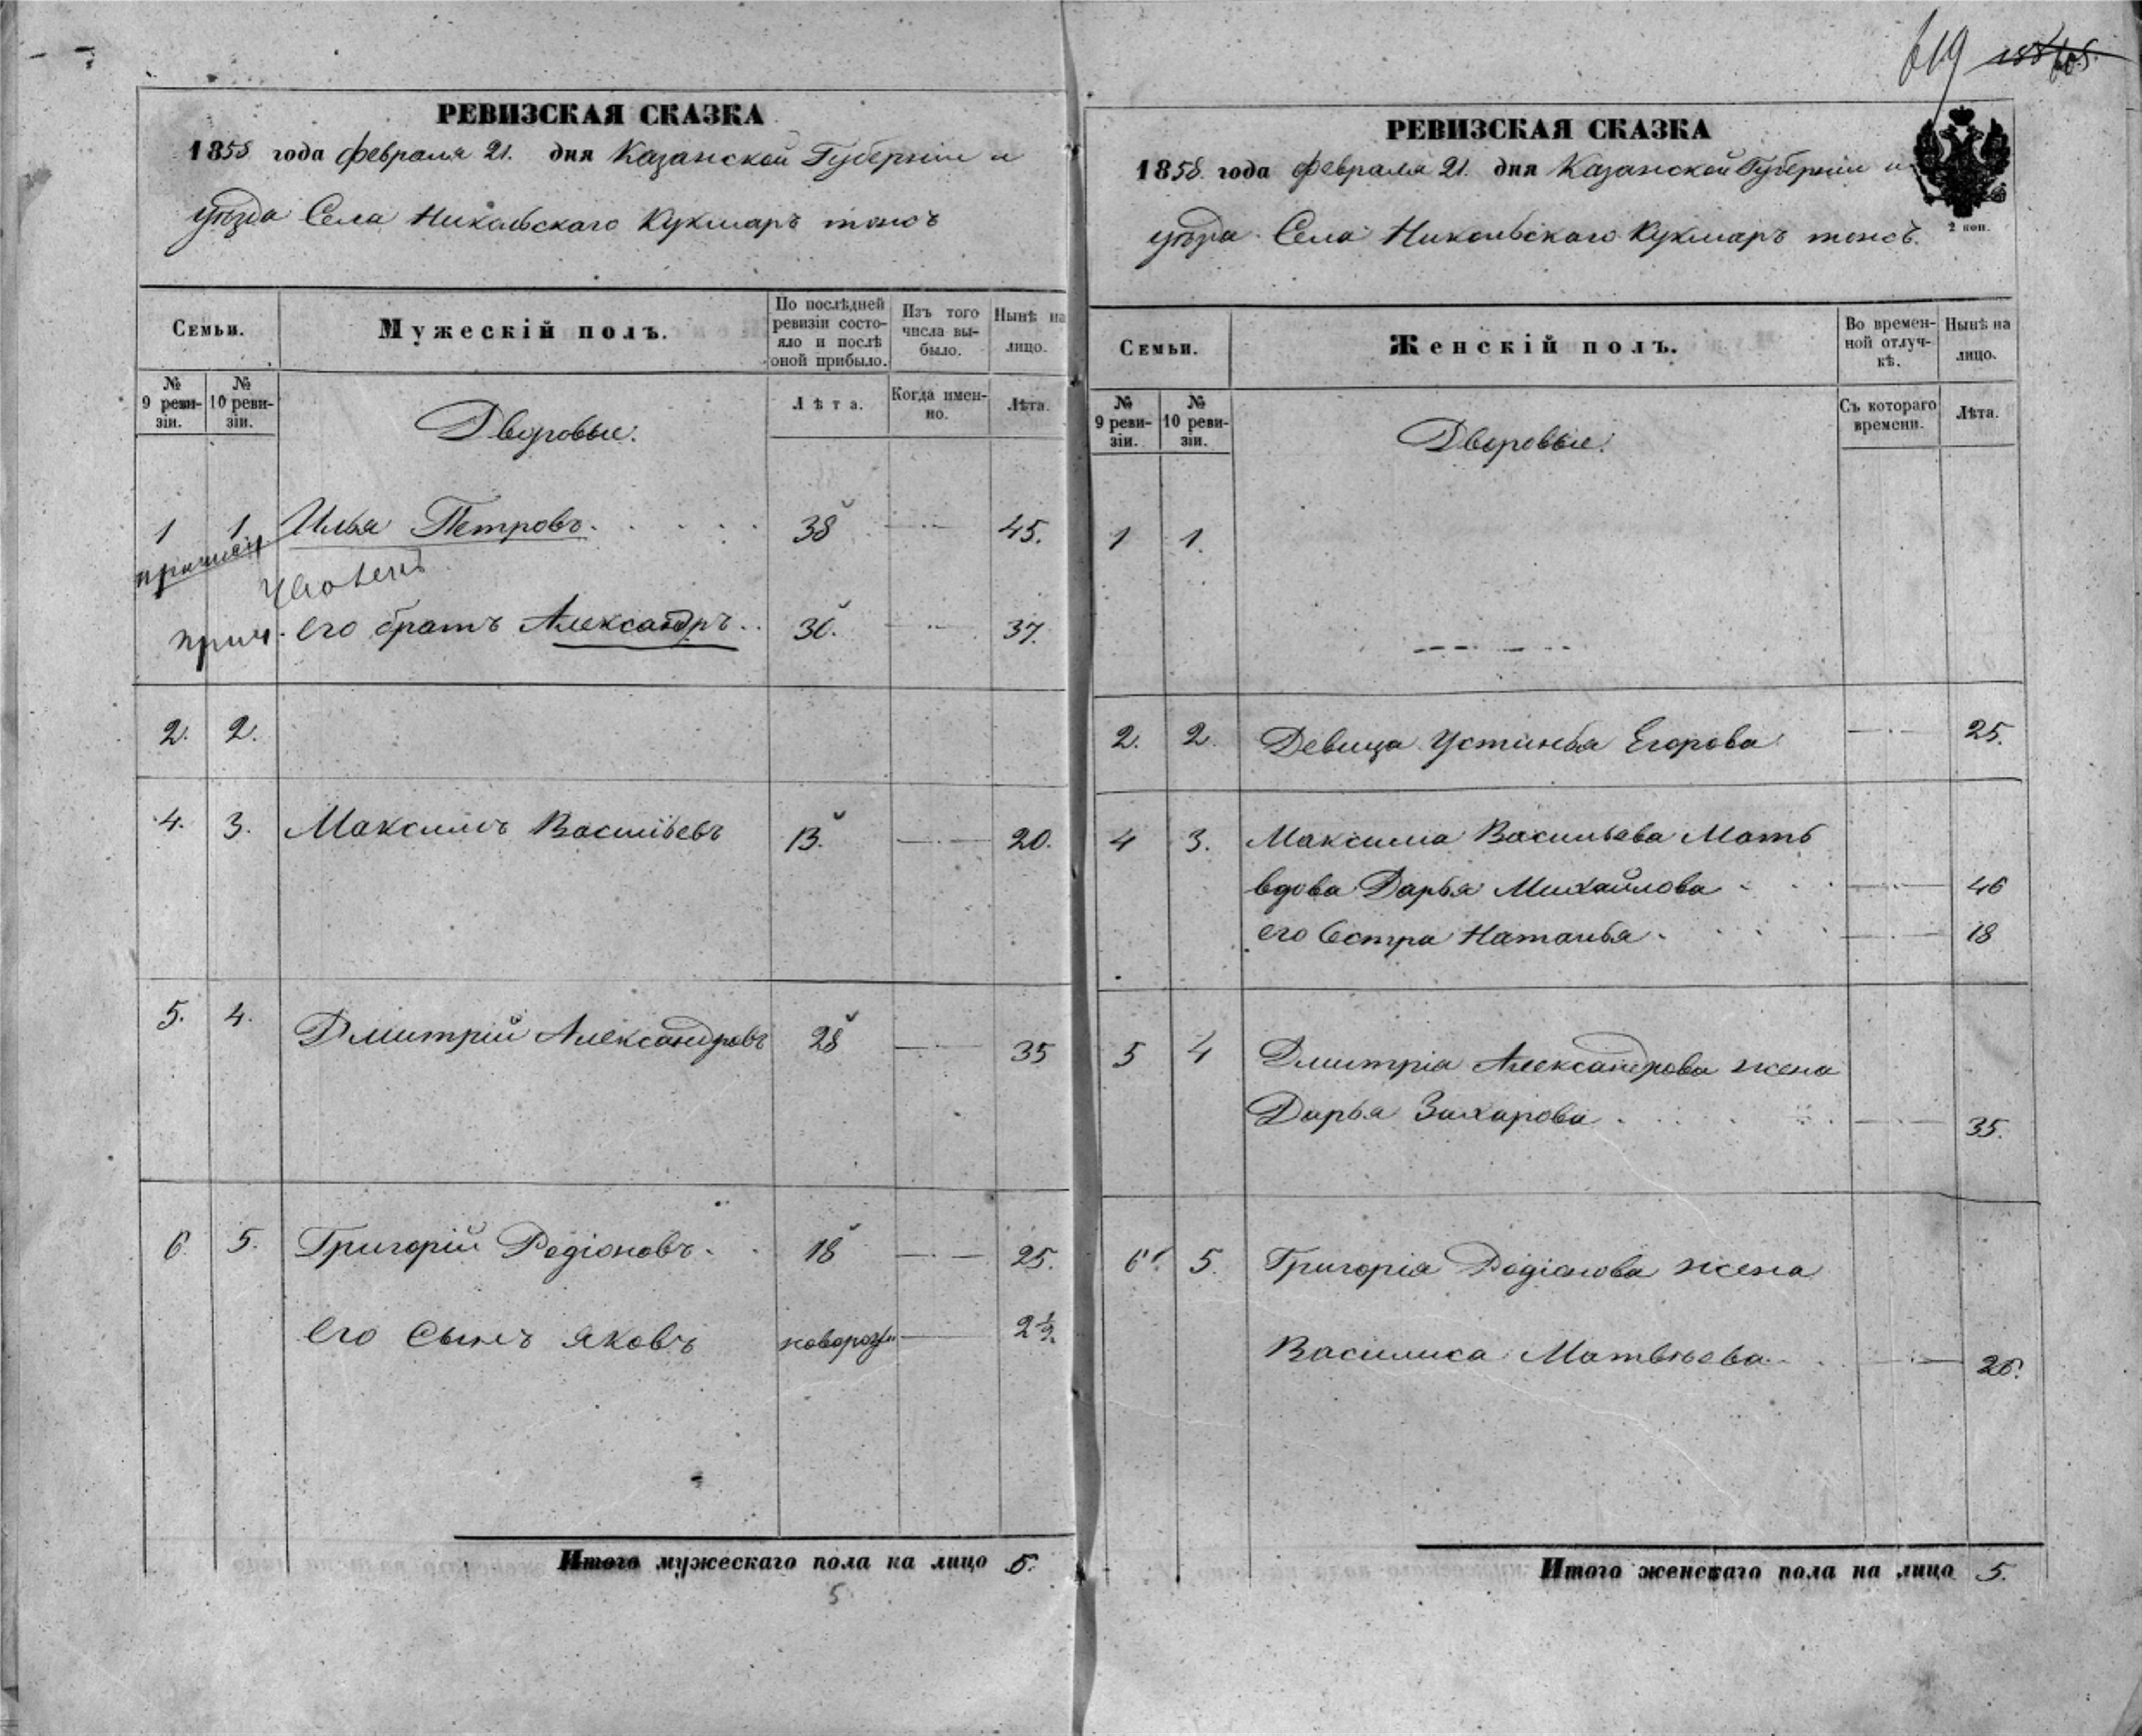 619
РЕВИЗСКАЯ СКАЗКА
1858 года февраля 21. дня Казанской Губернiи и
уѣзда Села Никольскаго Кукмаръ тожъ
Семьи.
Мужескiй полъ.
По послѣдней ревизiи состояло и послѣ оной прибыло.
Изъ того числа выбыло.
Нынѣ на лицо.
№ 9 ревизiи.
№ 10 ревизiи.
Дворовые.
Лѣта.
Когда именно.
Лѣта.
1 1 Илья Петровъ. 38 45.
его братъ Александръ.. 30. 37.
2. 2.
4. 3. Максимъ Васильевъ 13. 20.
5. 4. Дмитрiй Александровъ 28 35
6. 5. Григорiй Родiоновъ. 18 25.
его сынъ Яковъ 2½.
Итого мужескаго пола на лицо 5.
5
РЕВИЗСКАЯ СКАЗКА
1858. года февраля 21. дня Казанской Губернiи и
уѣзда Села Никольскаго Кукмаръ тожъ.
2 коп.
Семьи.
Женскiй полъ.
Во временной отлучкѣ.
Нынѣ на лицо.
№ 9 ревизiи.
№ 10 ревизiи.
Дворовые.
Съ котораго времени.
Лѣта.
1 1.
2. 2. Девица Устинья Егорова 25.
4 3. Максима Васильева Мать
вдова Дарья Михайлова 46
его Сестра Наталья. 18
5 4 Дмитрiя Александрова жена
Дарья Захарова 35.
6. 5. Григорiя Родiонова жена
Василиса Матвѣева
Итого женскаго пола на лицо 5.